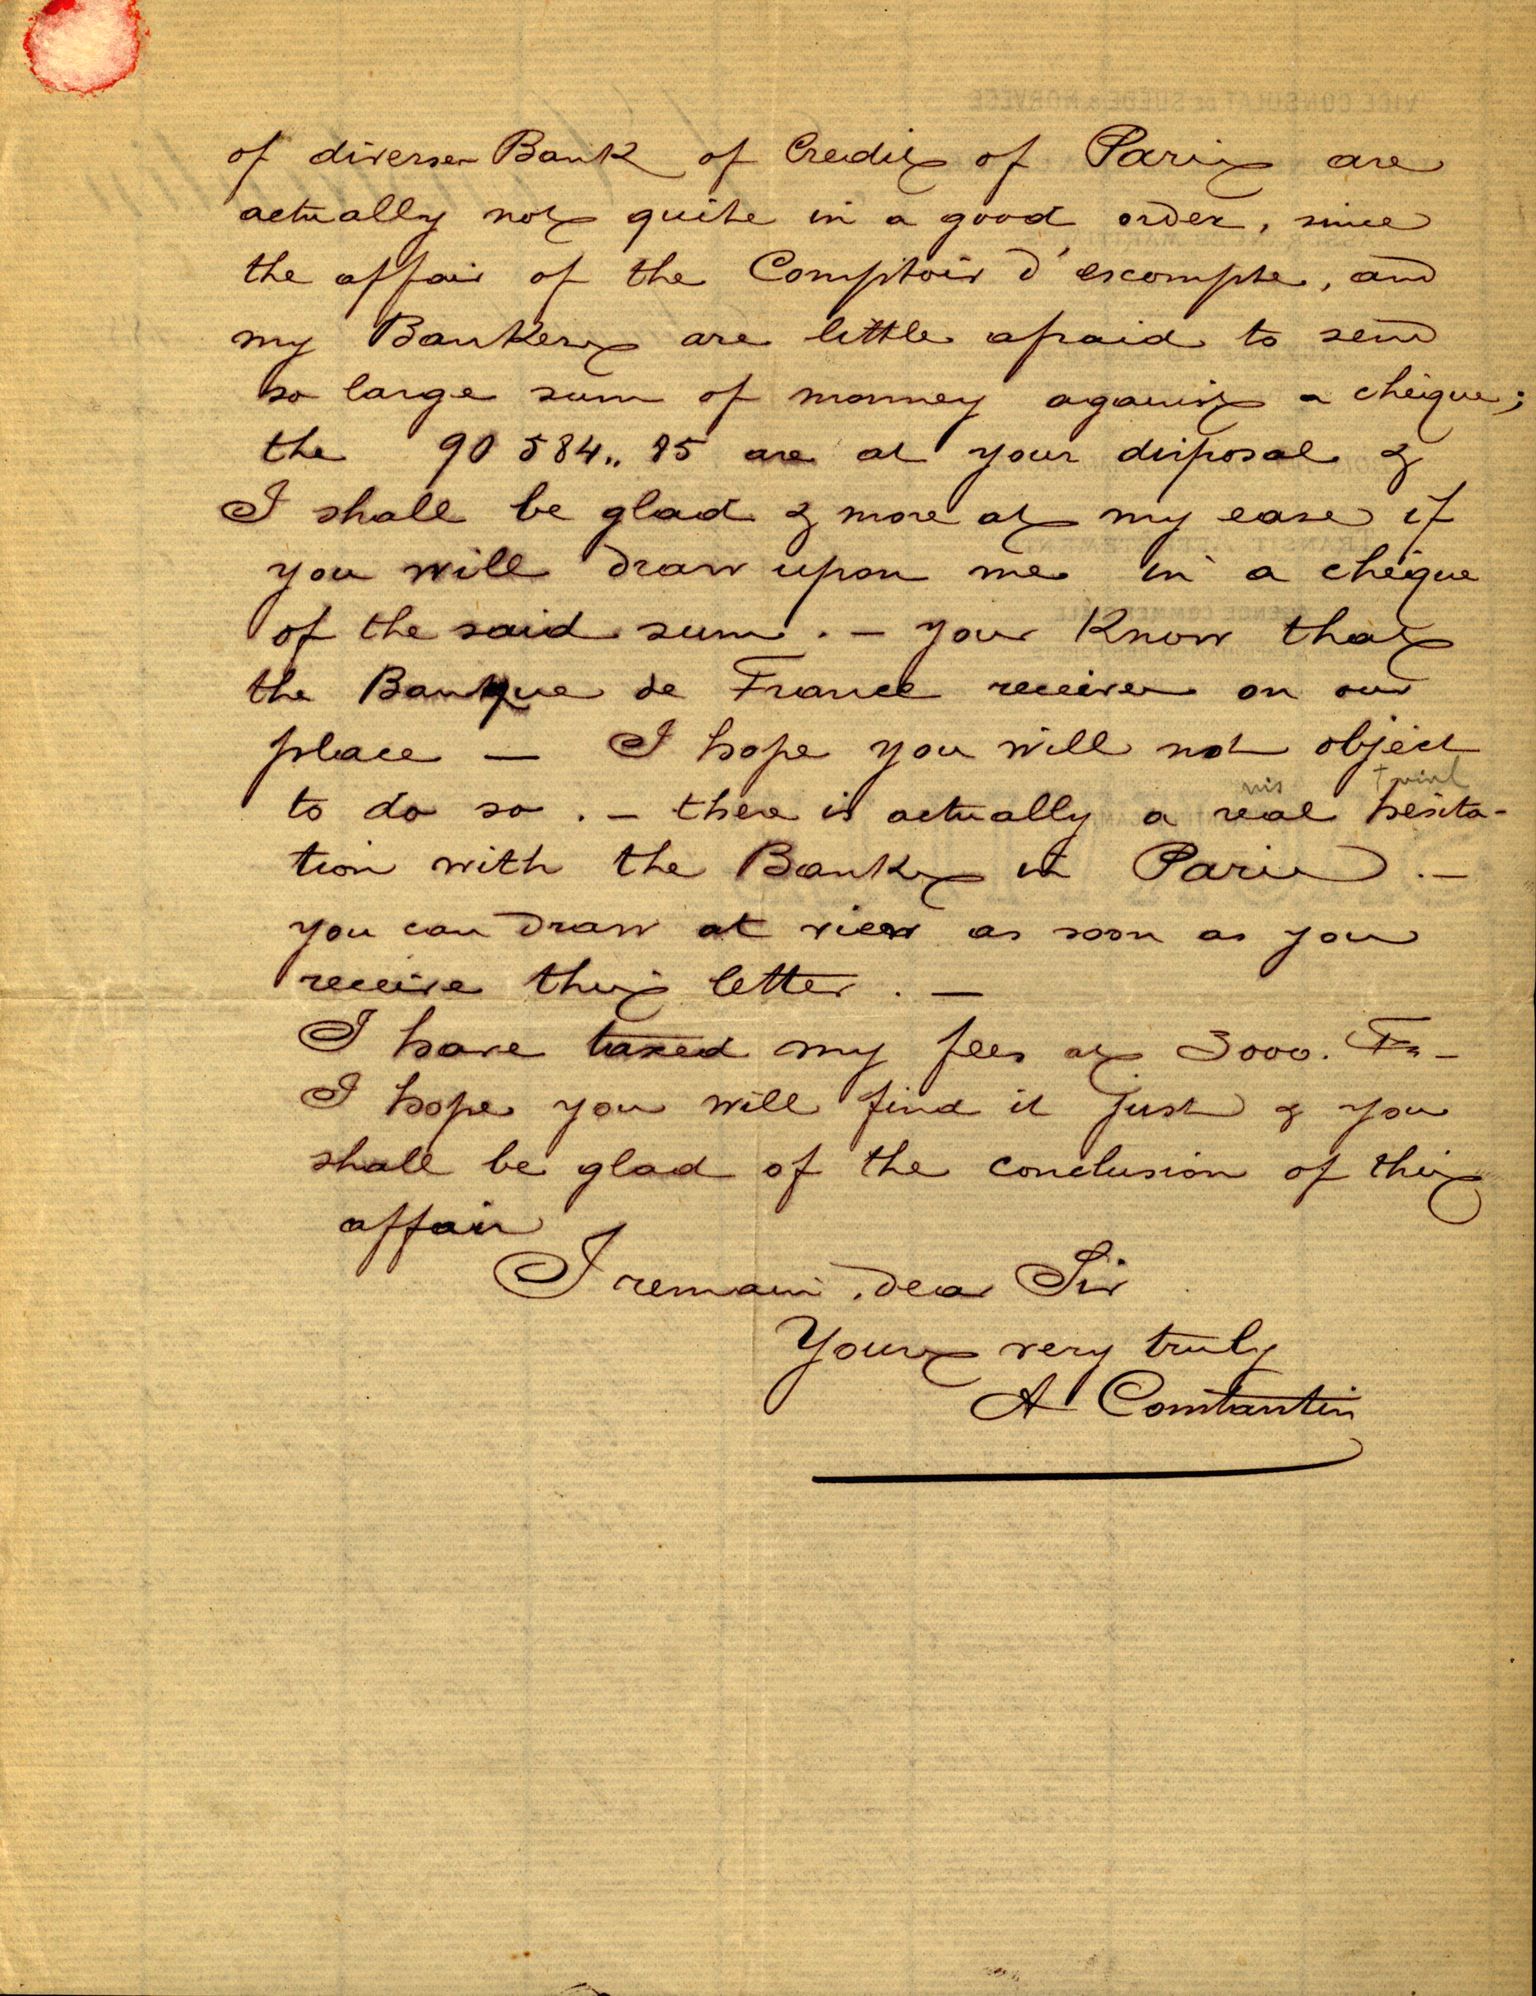 VICE CONSULAT DE SUÈDE & NORVÈGE
of diverses Bank of Credit of Paris are
actually not quite in a good order, since
the affair of the Comptoir d'escompte, and
my Bankers are little afraid to send
so large sum of monney against a chèque;
the 90 584,, 85 are at your disposal &
I shall be glad & more at my ease if
you will draw upon me in a chèque
of the said sum . — your Know that
the Banque de France receives on our
place — I hope you will not object
to do so . — there is actually a real hesita-
tion with the Banks in Paris . —
you can draw at view as soon as you
receive this letter . —
I have taxed my fees at 3000. Fs —
I hope you will find it just & you
shall be glad of the conclusion of this
affair
I remain, dear Sir
Yours very truly
A Constantin